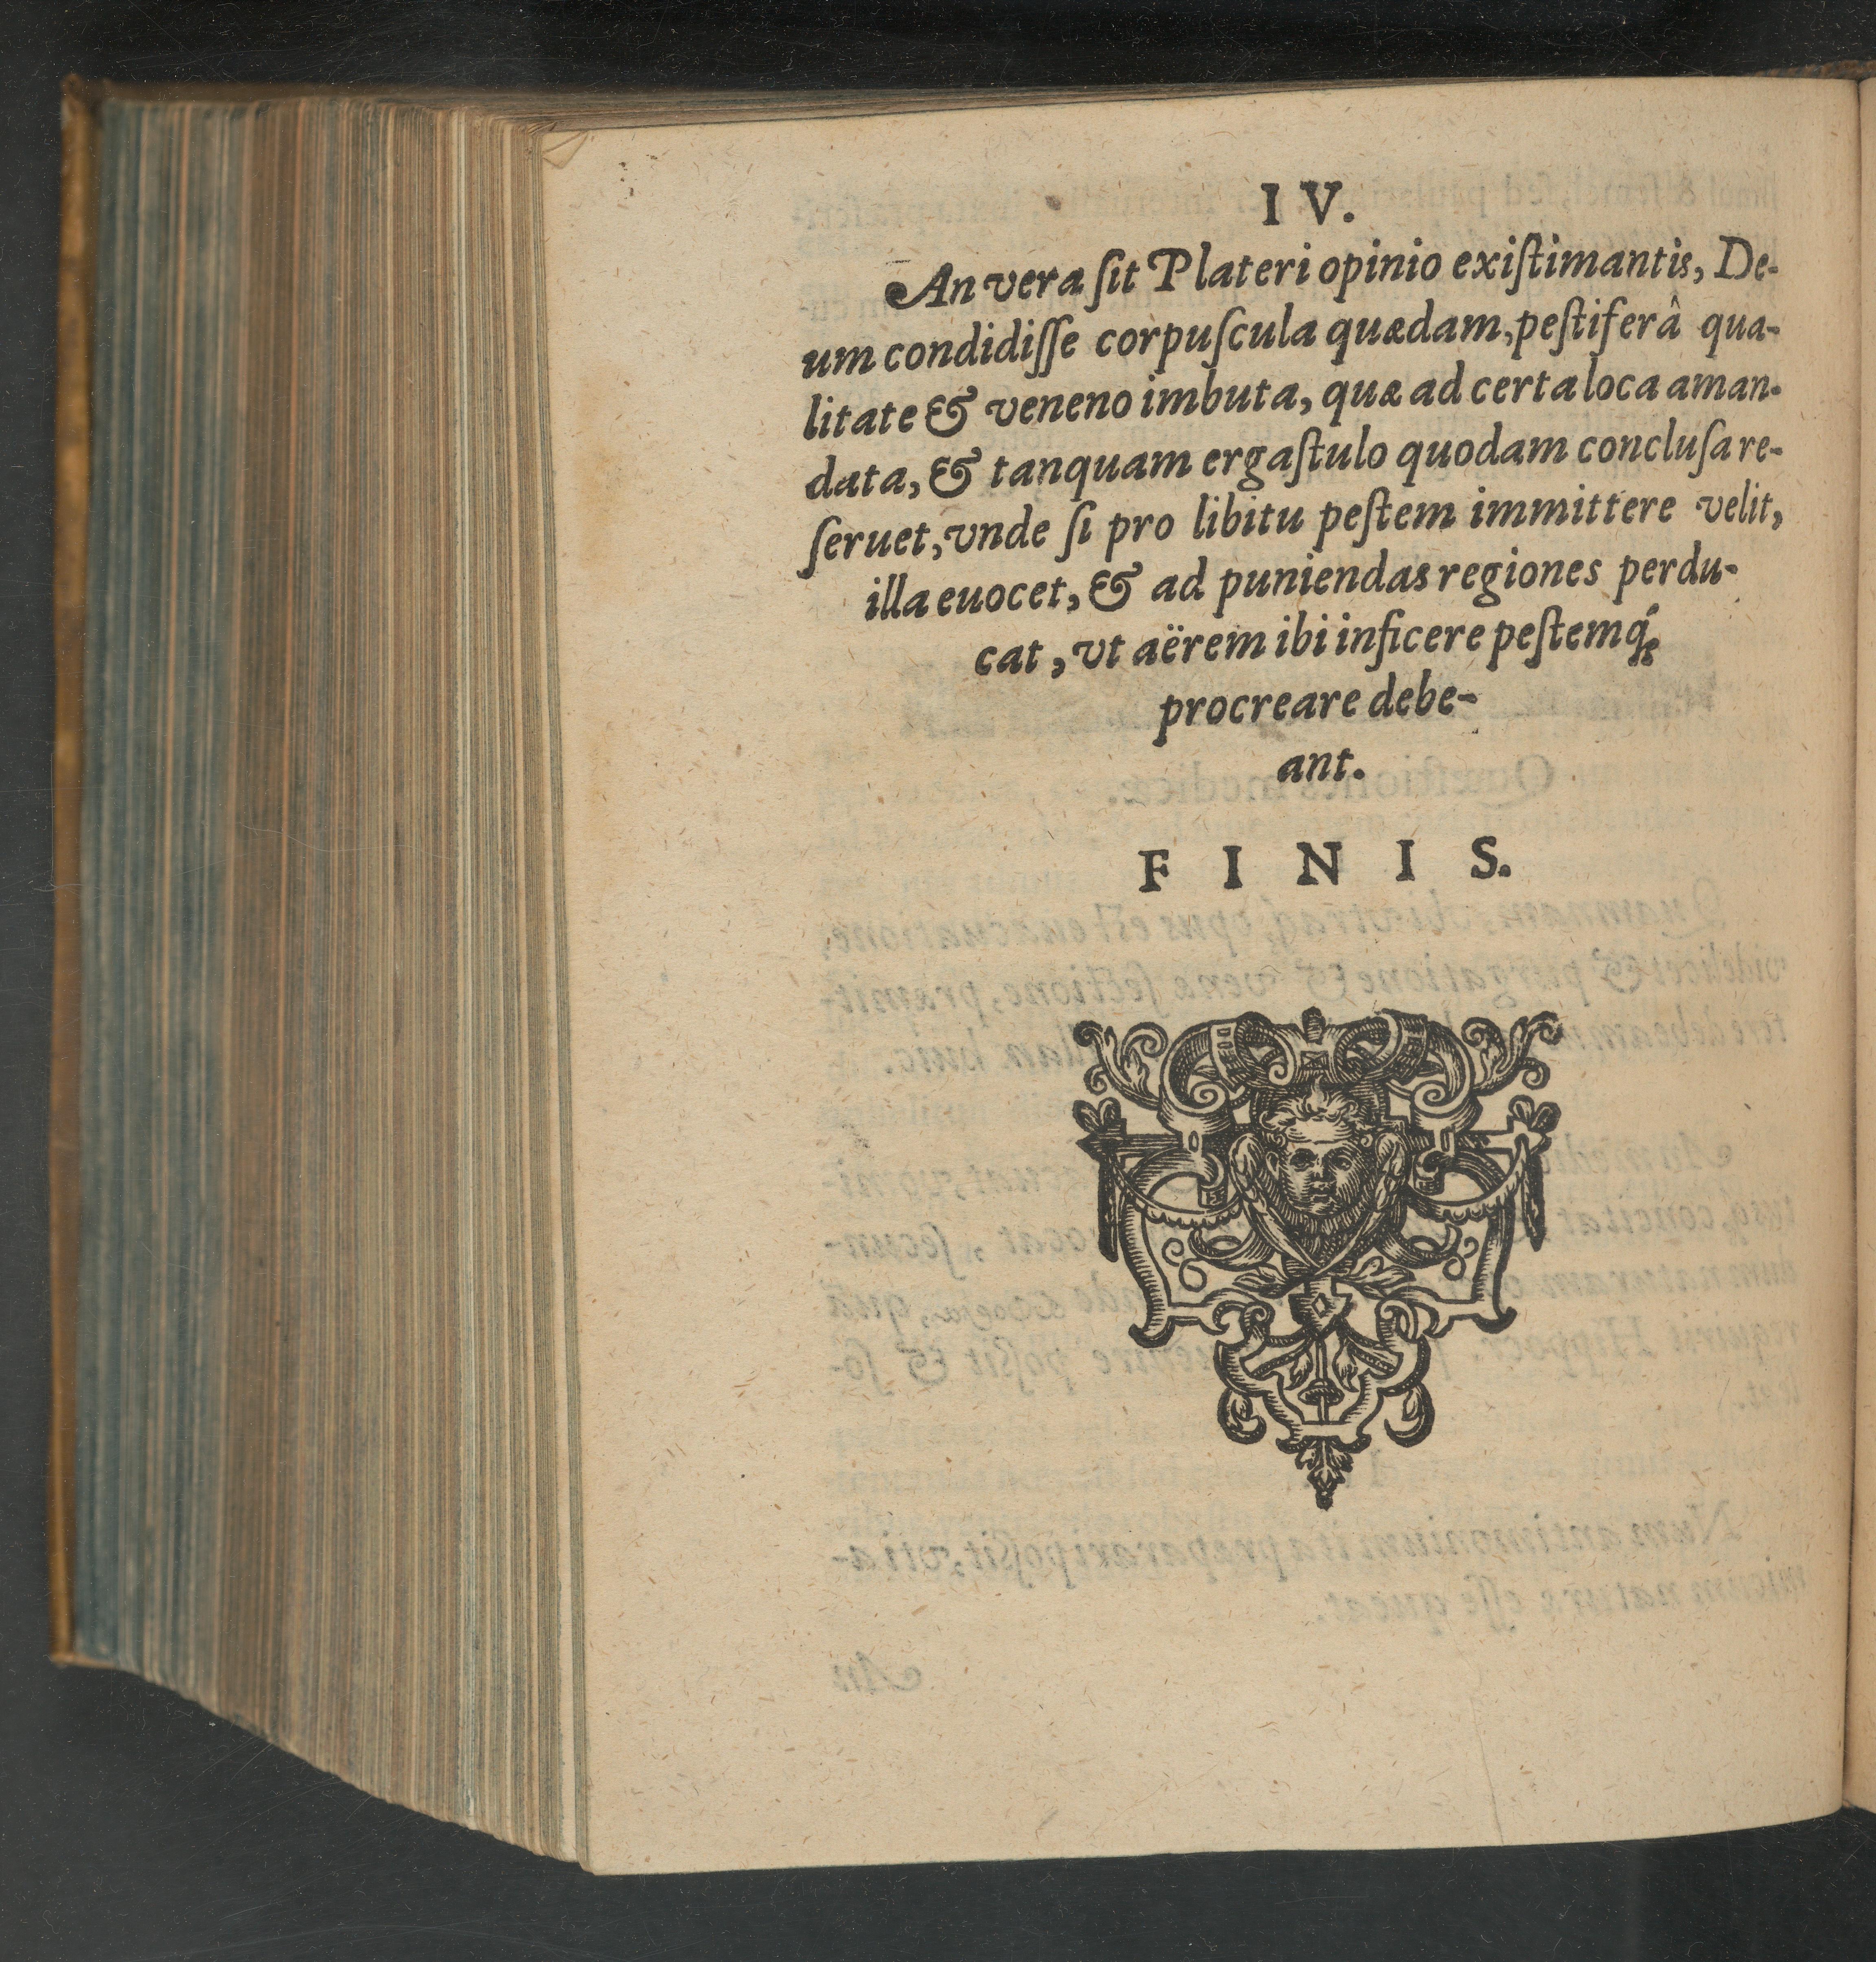 IV.
An vera ſit Plateri opinio exiſtimantis, De-
um condidiſſe corpuſcula quædam, peſtiferâ qua-
litate & veneno imbuta, quæ ad certa loca aman-
data, & tanquam ergaſtulo quodam concluſa re-
ſeruet, vnde ſi pro libitu peſtem immittere velit,
illa euocet, & ad puniendas regiones perdu-
cat, vt aërem ibi inficere peſtemq́;
procreare debe-
ant.
FINIS.